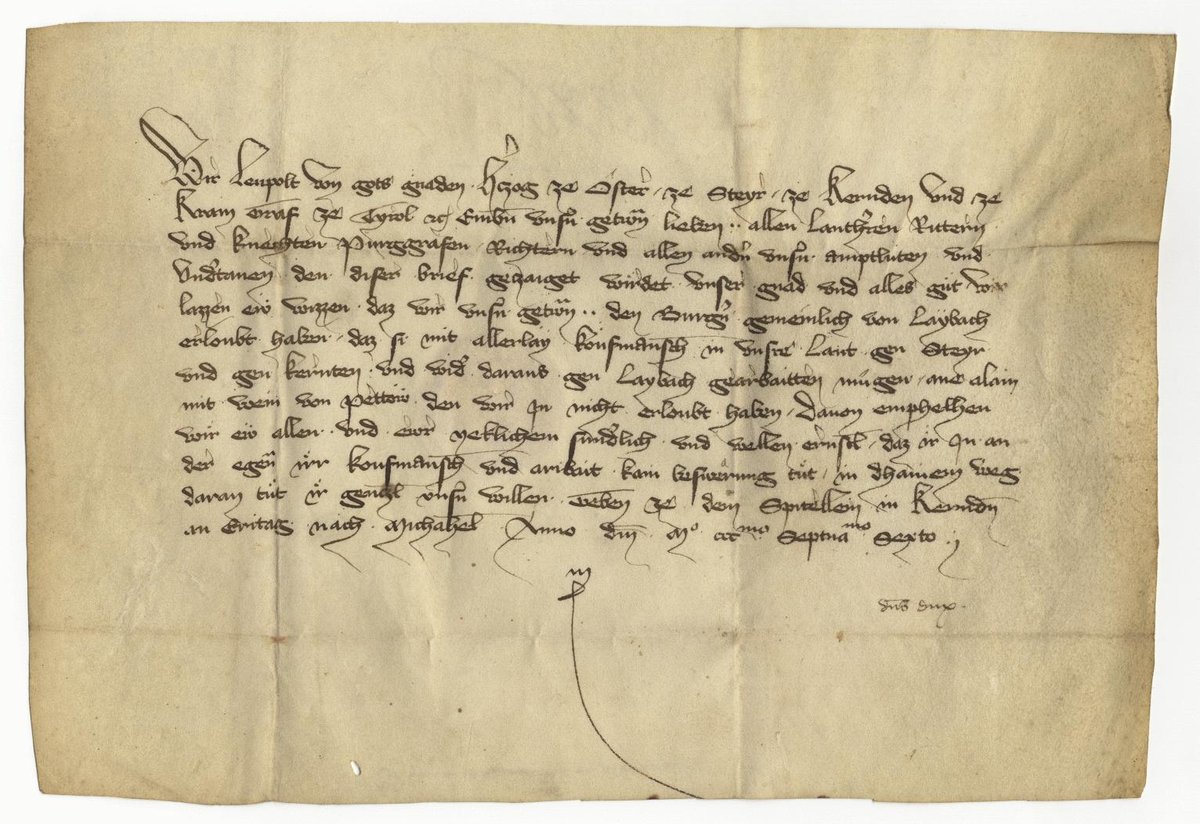 Wir Leupolt von gots gnaden Herzog ze Osterr ze Steyr ze Kernden und ze
Kram Graf ze Tyrol etc Embieten unsern getrewn lieben allen Lantherren Rittern
und knechten Purggrafen Richtern und allen andern unsern amptluten und
undertanen den diser brief gezaiget wirdet unser gnad und alles gut Wir
lazzen ew wizzen daz wir unsern getrewn den Burgern gemeinlich von Laybach
erloubt haben daz si mit allerlay koufmansch in unsre Lant gen Steyr
und gen kernten und wider daraus gen Laybach gearbaitten mugen ane alain
mit wein von Pettow den wir In nicht erloubt haben Davon emphelhen
wir ew allen und ewr yeklichem sunderlich und wellen ernstlich daz ir In an
der egenanten irr koufmansch und aribait kain beswerung tut in dhainem weg
daran tut ir genczl unsern willen Geben ze dem Spitellein in Kernden
an Eritag nach Michahel Anno dm Mo cccmo Septuamo Sexto
dns dux